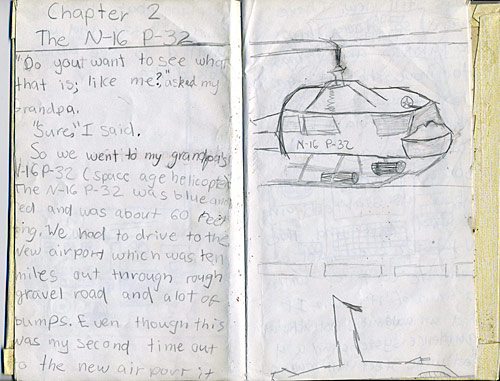 Chapter 2
The N-16 P-32
"Do your want to see what
that is; like me?" asked my
grandpa.
"Sure," I said.
So we went to my grampa's
N-16 P-32 (space age helicopter).
The N-16 P-32 was blue and
red and was about 60 feet
long. We had to drive to the
new airport which was ten
miles out through rough
gravel road and alot of
bumps. Even though this
was my second time out
to the new airport it
N-16 P-32